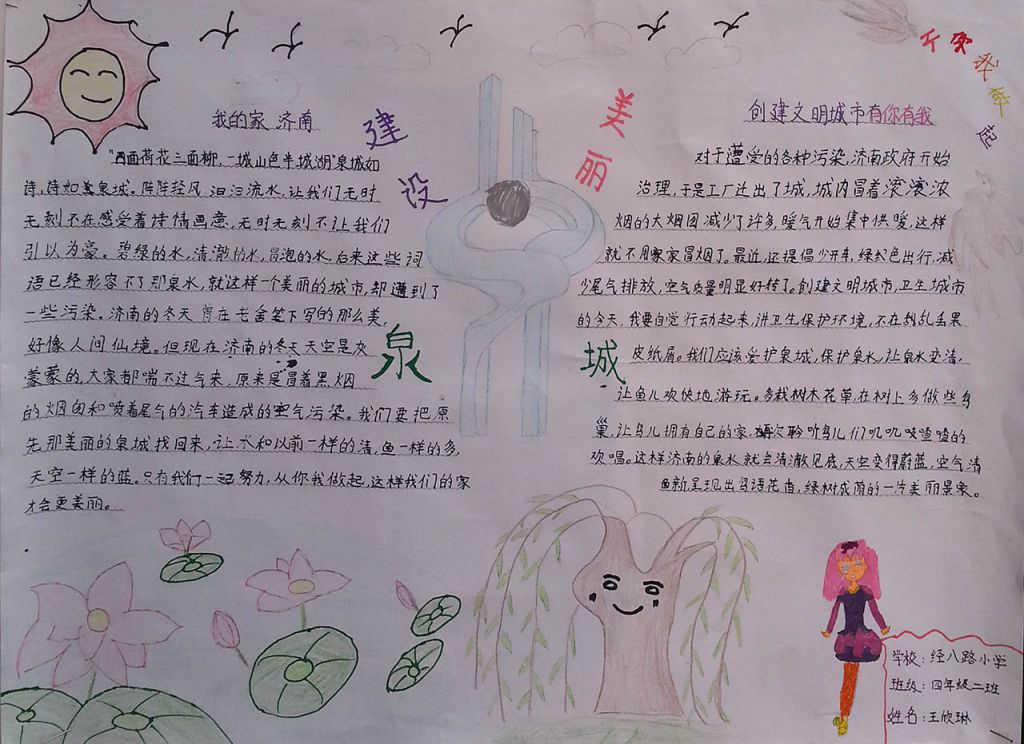 建设
美丽
泉城
我的家 济南
"四面荷花三面柳,一城山色半城湖"泉城如
诗,诗如美泉城。阵阵轻风,汩汩流水,让我们无时
无刻不在感受着诗情画意,无时无刻不让我们
引以为豪。碧绿的水,清澈的水,冒泡的水,后来这些词
语已经形容不了那泉水,就这样一个美丽的城市,却遭到了
一些污染。济南的冬天曾在老舍笔下写的那么美,
好像人间仙境。但现在济南的冬天天空是灰
蒙蒙的,大家都喘不过气来,原来是冒着黑烟
的烟囱和喷着尾气的汽车造成的空气污染。我们要把原
先那美丽的泉城找回来,让水和以前一样的清,鱼一样的多,
天空一样的蓝。只有我们一起努力,从你我做起,这样我们的家
才会更美丽。
创建文明城市有你有我
对于遭受的各种污染,济南政府开始
治理,于是工厂迁出了城,城内冒着滚滚浓
烟的大烟囱减少了许多,暖气开始集中供暖,这样
就不用家家冒烟了。最近还提倡少开车,绿色出行,减
少尾气排放,空气质量明显好转了。创建文明城市,卫生城市
的今天,我要自觉行动起来,讲卫生保护环境,不在乱丢果
皮纸屑。我们应该爱护泉城,保护泉水,让泉水变清,
让鱼儿欢快地游玩。多栽树木花草,在树上多做些鸟
巢,让鸟儿拥有自己的家,每次聆听鸟儿们叽叽喳喳的
欢唱。这样济南的泉水就会清澈见底,天空变得蔚蓝,空气清
新,呈现出鸟语花香,绿树成荫的一片美丽景象。
学校:经八路小学
班级:四年级二班
姓名:王欣琳